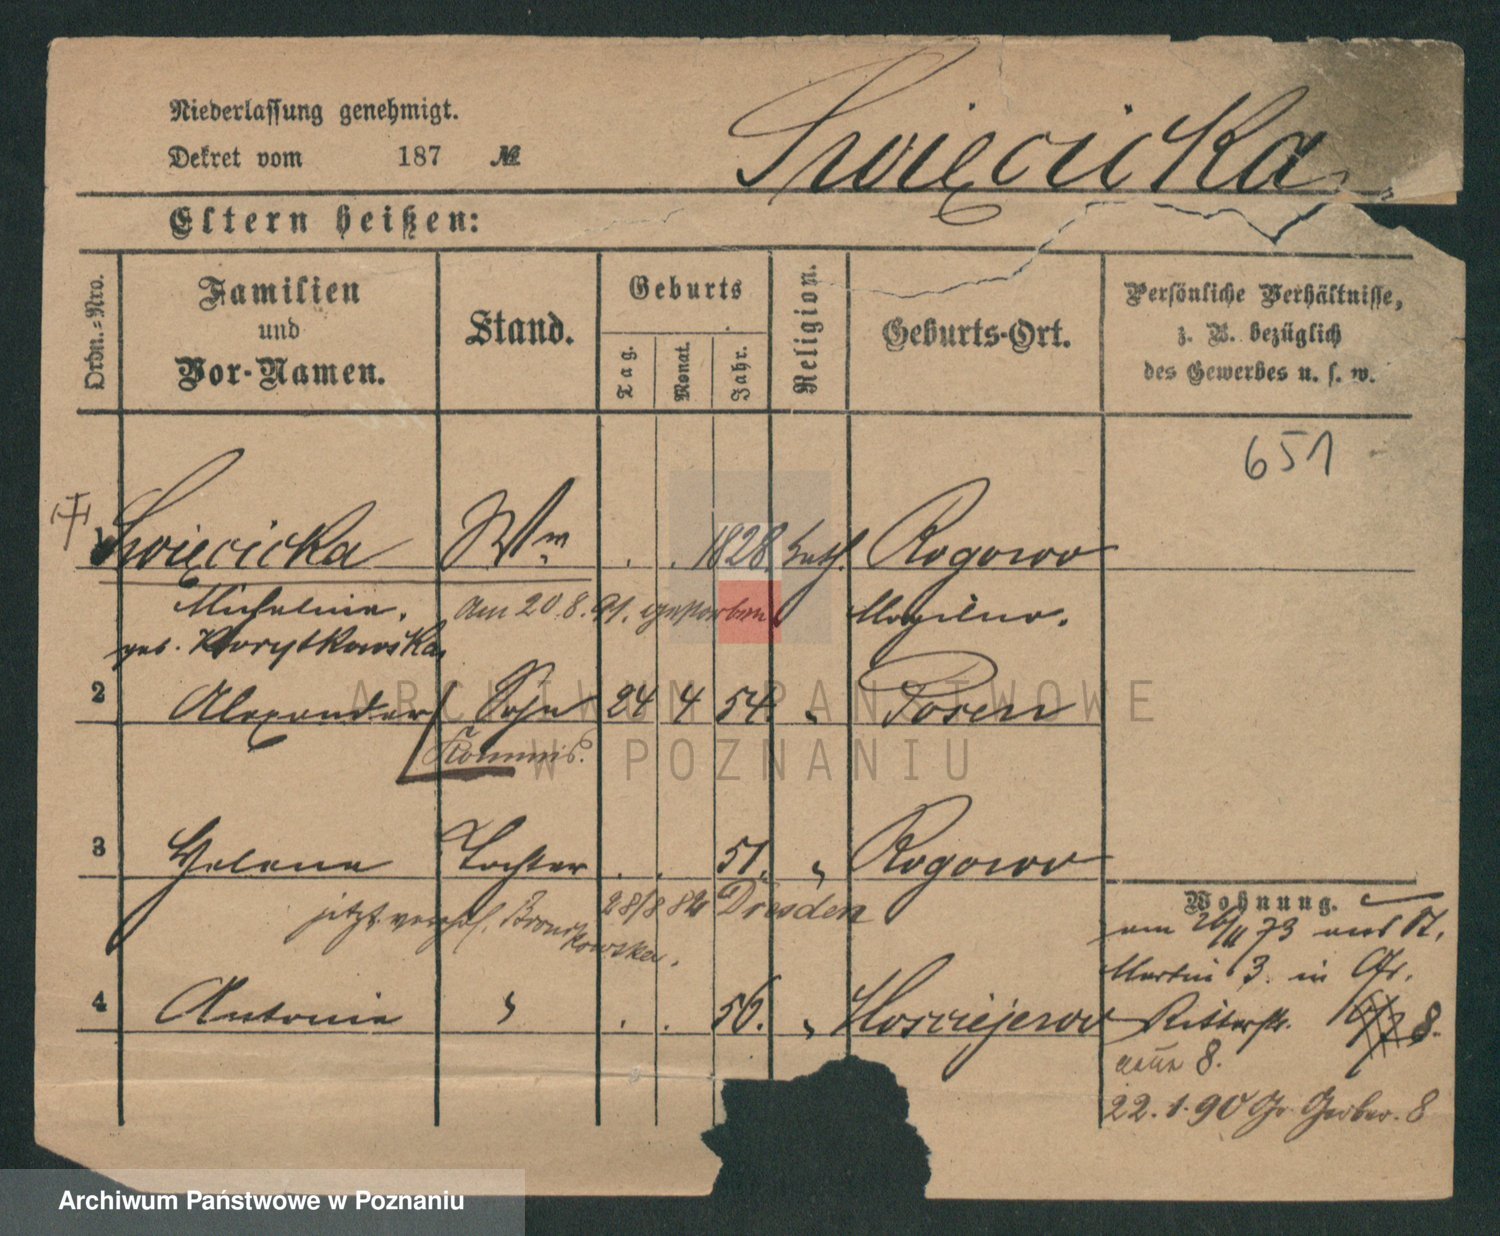 Niederlassung genehmigt.
Dekret vom 187 №
Swięcicka
Eltern heißen:
Ordn.=Nro.
Familien
und
Vor-Namen.
Stand.
Geburts
Tag.
Monat.
Jahr.
Religion.
Geburts-Ort.
Persönliche Verhältnisse,
z. B. bezüglich
des Gewerbes u. s. w.
651
1 Swięcicka Ww . . 1828. kath. Rogowo
Micheline, am 20.8.91. gestorben Mogilno.
geb. Korytkowska
2 Alexander Sohn 24 4 54. " Posen
Kommis.
3 Helene Tochter . . 51. " Rogowo
jetzt verehel. Bronikowska. 28/8 82 Dresden
Wohnung.
am 26/11 73 aus St.
Martin 3. in Gr.
4 Antonie " . . 56. " Ritterstr. 8.
neue 8.
22.1.90 Gr. Gerber. 8
ARCHIWUM PAŃSTWOWE
W POZNANIU
Archiwum Państwowe w Poznaniu